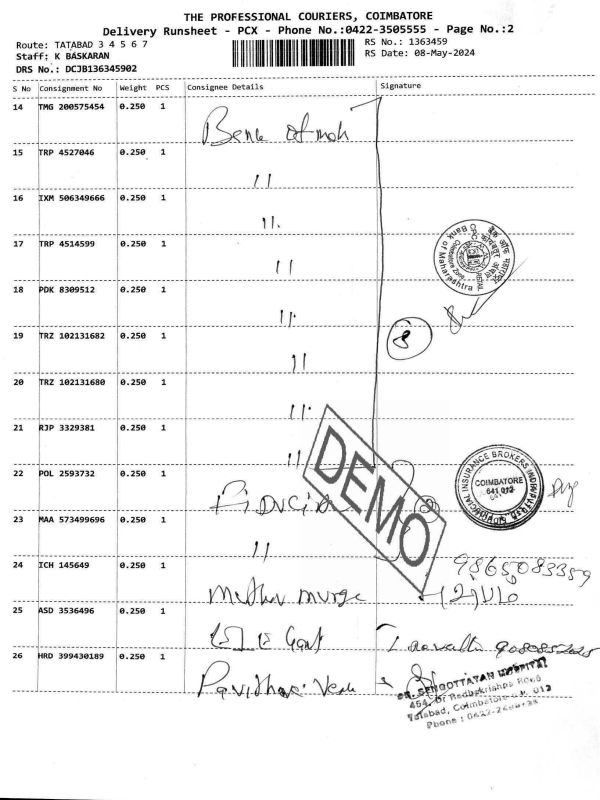 THE PROFESSIONAL COURIERS, COIMBATORE
Delivery Runsheet - PCX - Phone No.:0422-3505555 - Page No.:2
Route: TATABAD 3 4 5 6 7
RS No.: 1363459
Staff: K BASKARAN
RS Date: 08-May-2024
DRS No.: DCJB136345902
S No Consignment No Weight PCS Consignee Details Signature
14 TMG 200575454 0.250 1 Bank of mah
15 TRP 4527046 0.250 1 "
16 IXM 506349666 0.250 1 "
17 TRP 4514599 0.250 1 "
Bank of Maharashtra
Coimbatore Zone
18 PDK 8309512 0.250 1 "
19 TRZ 102131682 0.250 1 "
8
20 TRZ 102131680 0.250 1 "
21 RJP 3329381 0.250 1 "
DEMO
22 POL 2593732 0.250 1
INSURANCE BROKERS INDIA
COIMBATORE
641 012
23 MAA 573499696 0.250 1 "
24 ICH 145649 0.250 1
9865083359
25 ASD 3536496 0.250 1
26 HRD 399430189 0.250 1
DR. SENGOTTAYAN HOSPITAL
454, Dr Radhakrishna Road
Tatabad, Coimbatore